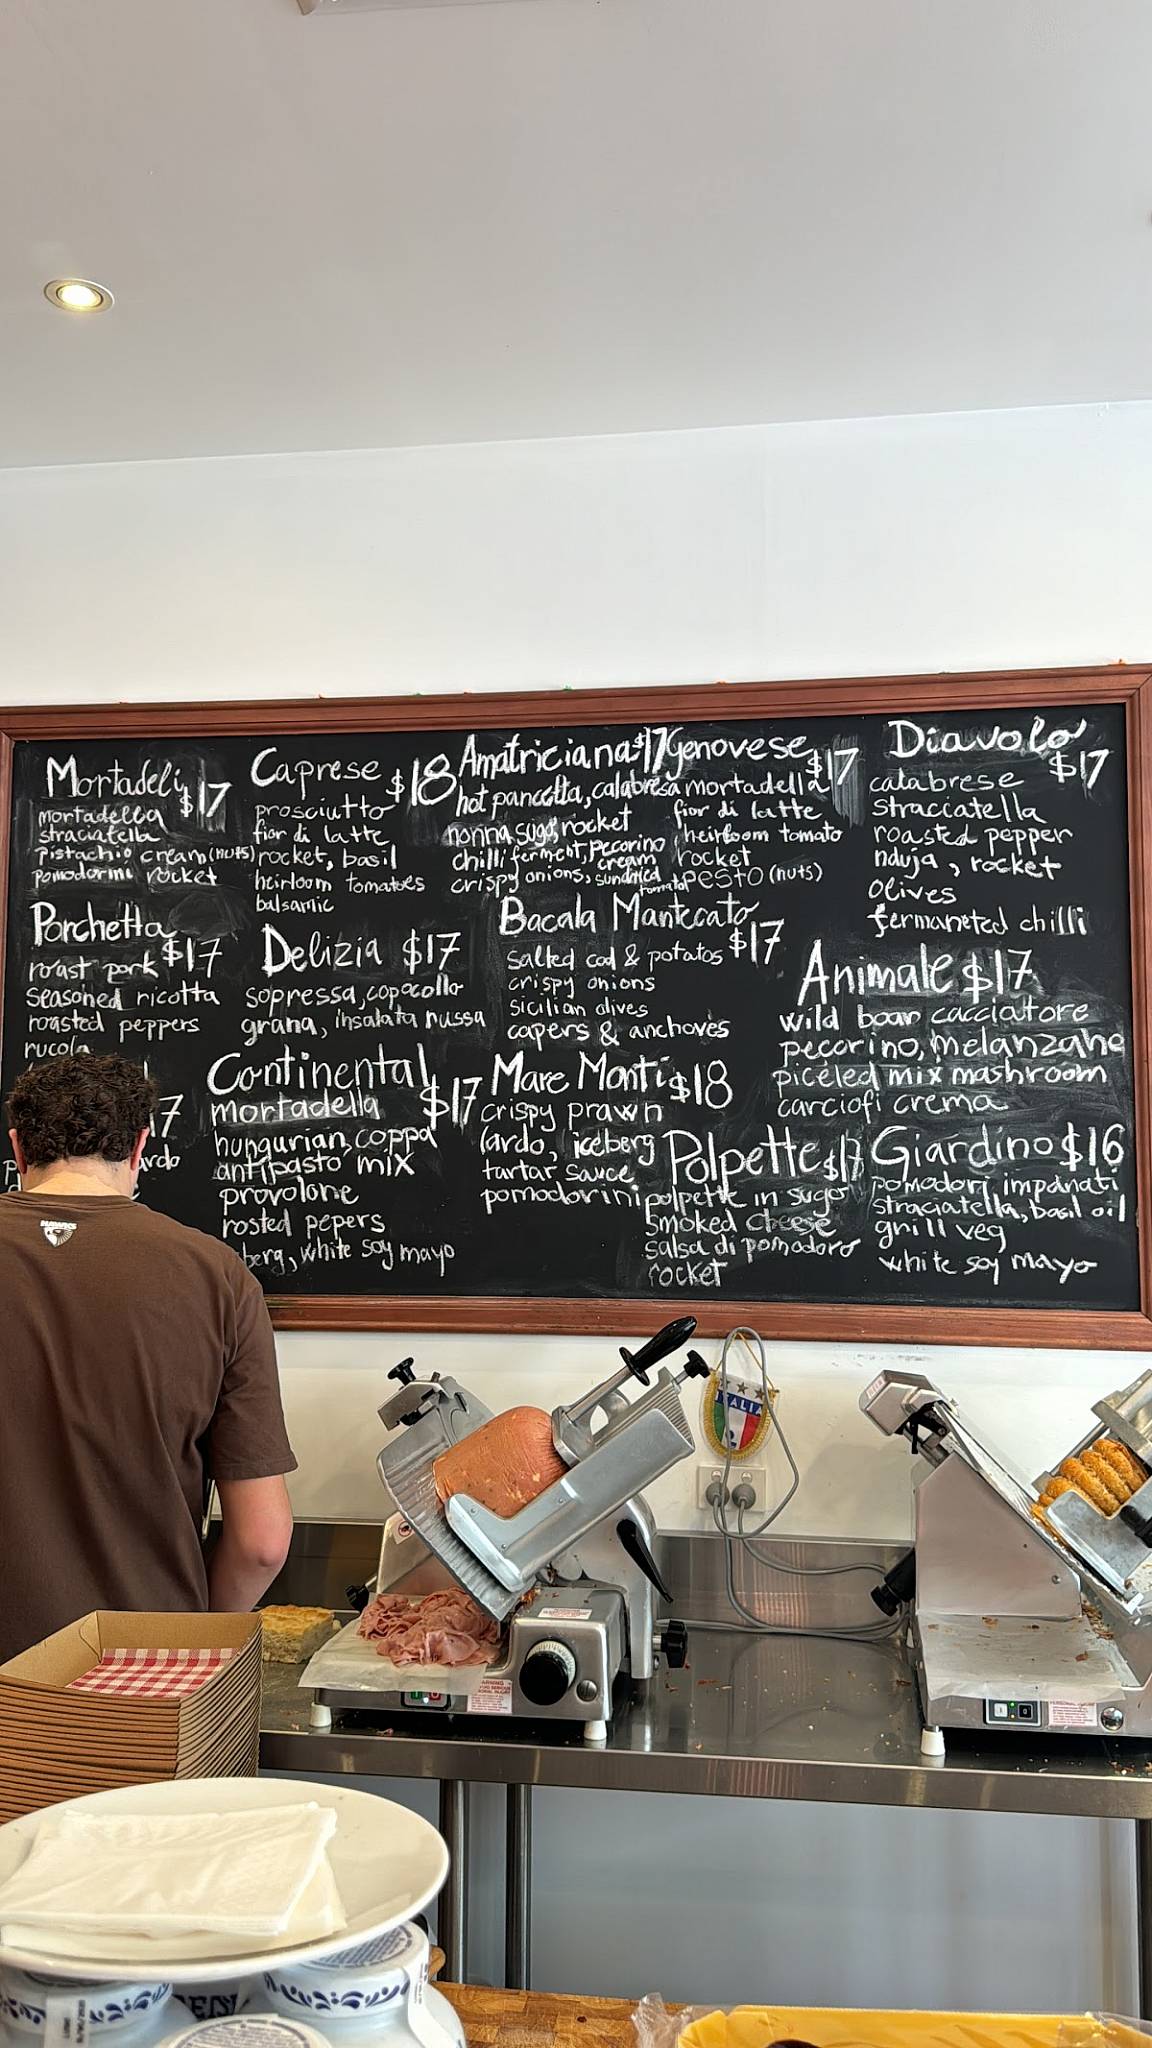 Mortadeli $17
mortadella
straciatella
Pistachio cream (nuts)
Pomodorini rocket
Porchetta $17
roast pork
seasoned ricotta
roasted peppers
rucola
17
ardo
Caprese $18
prosciutto
fior di latte
rocket, basil
heirloom tomatoes
balsamic
Delizia $17
sopressa, copocollo
grana, insalata russa
Continental $17
mortadella
hungurian, coppa
antipasto mix
provolone
rosted pepers
berg, white soy mayo
Amatriciana $17
hot pancetta, calabresa
nonna sugo, rocket
chilli ferment, pecorino cream
crispy onions, sundried tomato
Genovese $17
mortadella
fior di latte
heirloom tomato
rocket
pesto (nuts)
Bacala Mantecato $17
salted cod & potatos
crispy onions
sicilian olives
capers & anchoves
Mare Monti $18
crispy prawn
lardo, iceberg
tartar sauce
pomodorini
Polpette $17
polpette in sugo
smoked cheese
salsa di pomodoro
rocket
Diavolo $17
calabrese
Straciatella
roasted pepper
nduja, rocket
olives
fermaneted chilli
Animale $17
wild boar cacciatore
pecorino, melanzane
piceled mix mashroom
carciofi crema
Giardino $16
pomodori impanati
straciatella, basil oil
grill veg
white soy mayo
HAWKS
ITALIA
WARNING